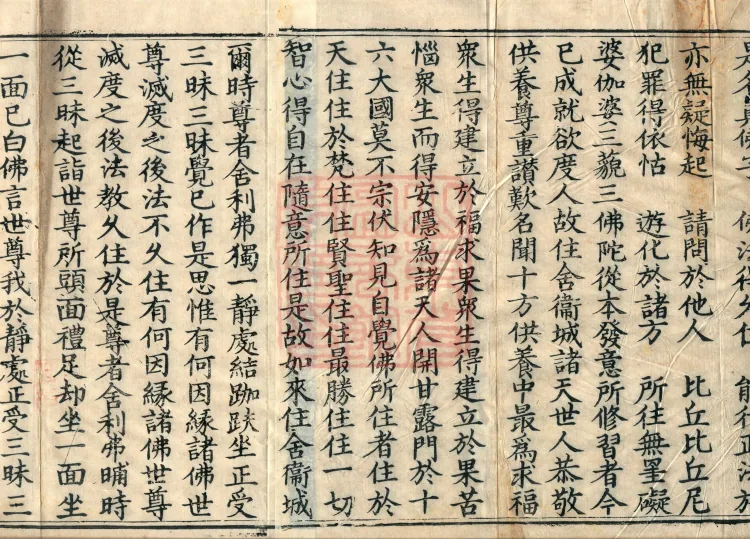 亦無疑悔起　請問於他人　比丘比丘尼
犯罪得依怙　遊化於諸方　所往無罣礙
婆伽婆三藐三佛陀從本發意所修習者今
已成就欲度人故住舍衞城諸天世人恭敬
供養尊重讃歎名聞十方供養中最爲求福
衆生得建立於福求果衆生得建立於果苦
惱衆生而得安隱爲諸天人開甘露門於十
六大國莫不宗伏知見自覺佛所住者住於
天住住於梵住住賢聖住住最勝住住一切
智心得自在隨意所住是故如來住舍衞城
爾時尊者舍利弗獨一靜處結跏趺坐正受
三昧三昧覺已作是思惟有何因緣諸佛世
尊滅度之後法不久住有何因緣諸佛世尊
滅度之後法教久住於是尊者舍利弗晡時
從三昧起詣世尊所頭面禮足却坐一面坐
一面已白佛言世尊我於靜處正受三昧三